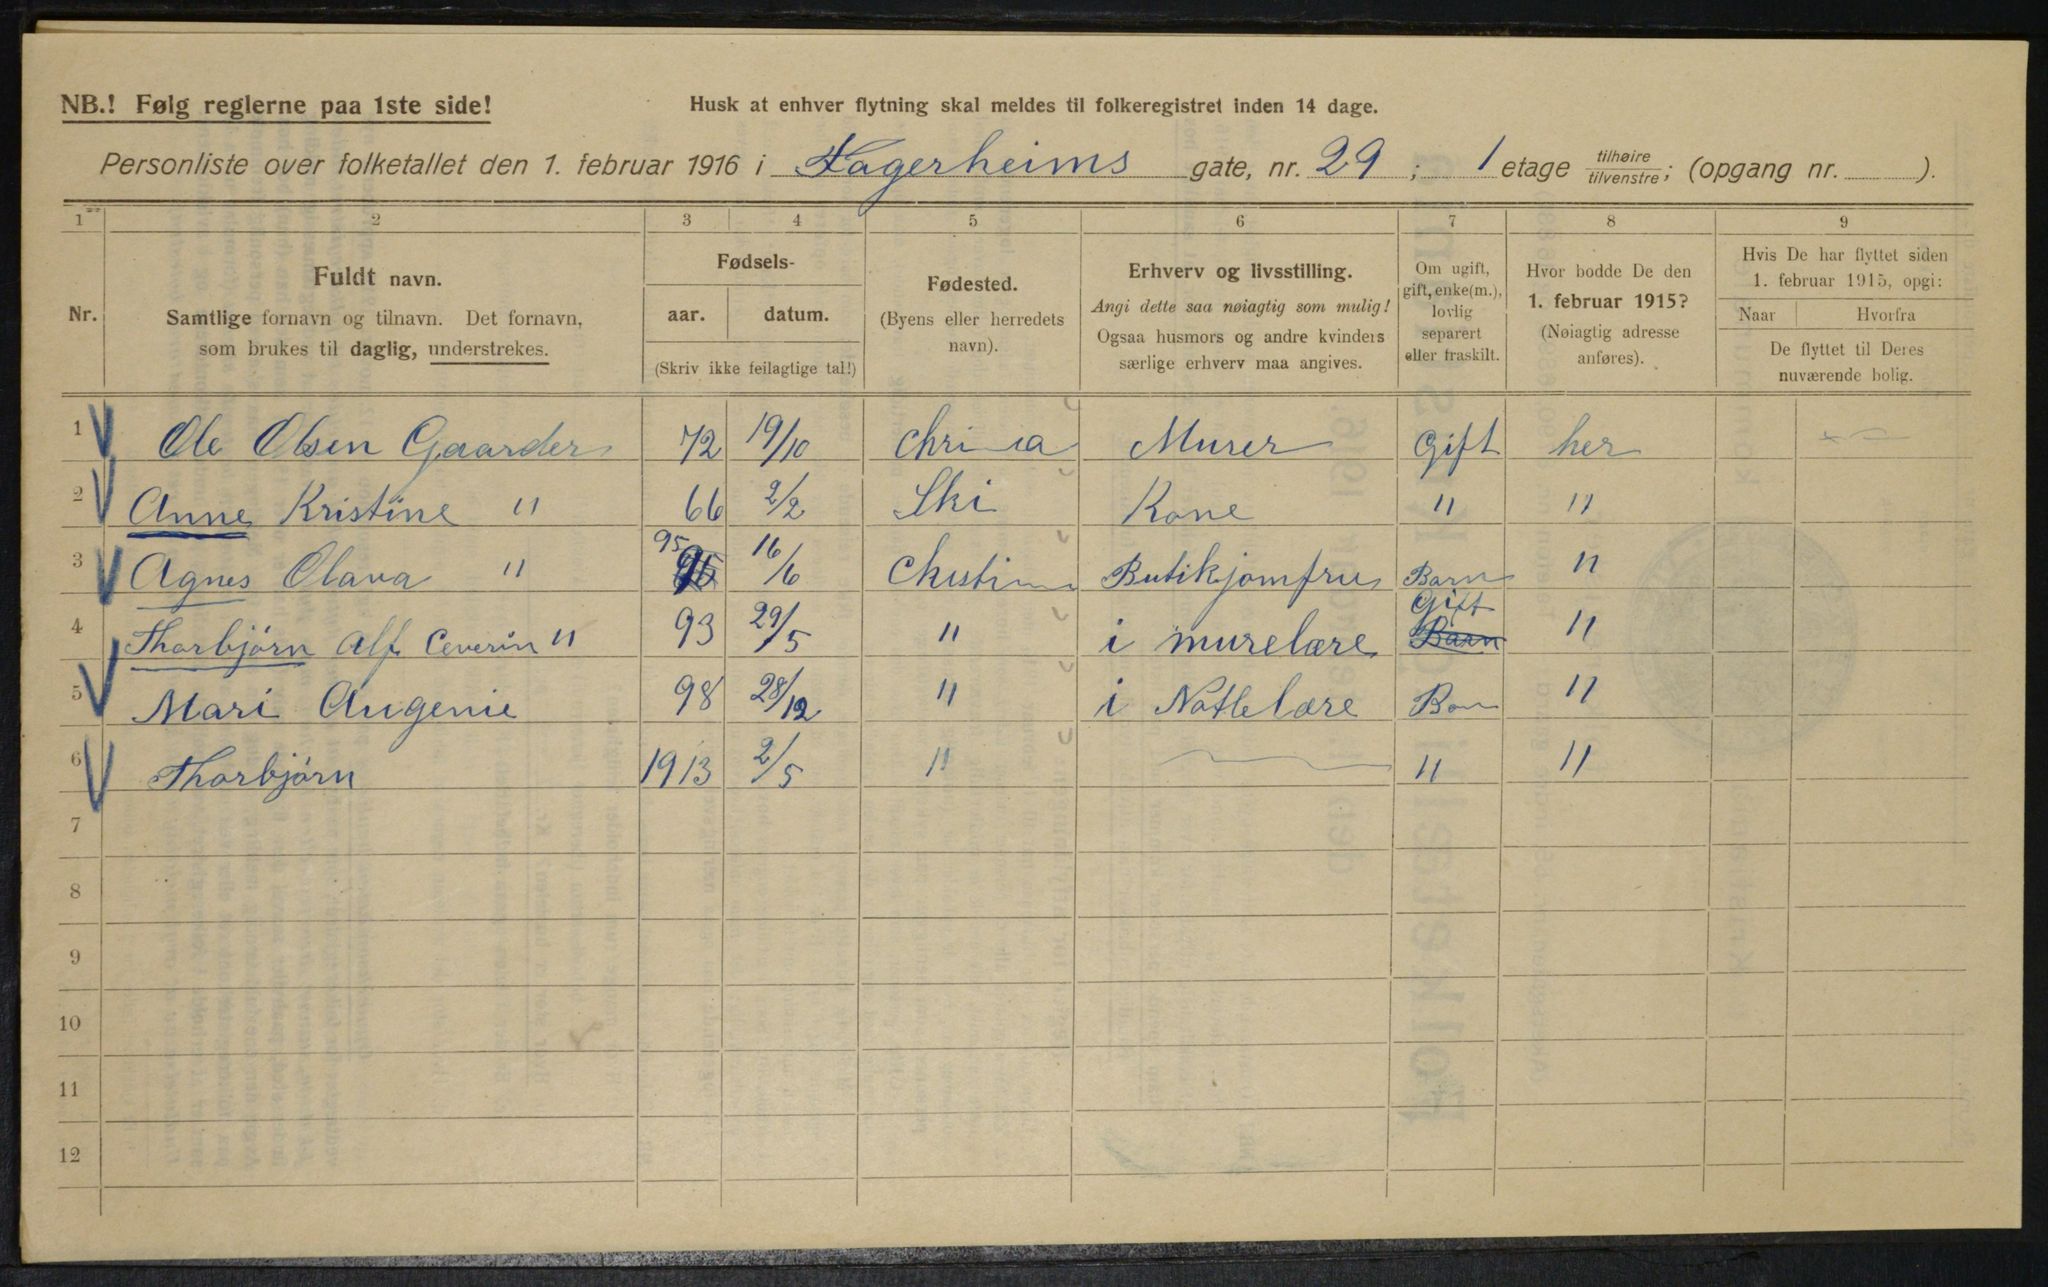 NB.! Følg reglerne paa 1ste side!
Husk at enhver flytning skal meldes til folkeregistret inden 14 dage.
Personliste over folketallet den 1. februar 1916 i Fagerheims gate, nr. 29; 1 etage tilhøire tilvenstre; (opgang nr. ).
1 2 3 4 5 6 7 8 9
Nr.
Fuldt navn.
Samtlige fornavn og tilnavn. Det fornavn,
som brukes til daglig, understrekes.
Fødsels-
aar. datum.
(Skriv ikke feilagtige tal!)
Fødested.
(Byens eller herredets
navn).
Erhverv og livsstilling.
Angi dette saa nøiagtig som mulig!
Ogsaa husmors og andre kvinders
særlige erhverv maa angives.
Om ugift,
gift, enke(m.),
lovlig
separert
eller fraskilt.
Hvor bodde De den
1. februar 1915?
(Nøiagtig adresse
anføres).
Hvis De har flyttet siden
1. februar 1915, opgi:
Naar Hvorfra
De flyttet til Deres
nuværende bolig.
1 Ole Olsen Gaarder 72 19/10 Chrinia Murer Gift her
2 Anne Kristine " 66 2/2 Ski Kone " "
3 Agnes Olava " 95 16/6 Butikjomfru Barn "
4 Thorbjørn Alf Ceverin " 93 29/5 " i murelære Gift Barn "
5 Mari Augenie 98 28/12 " i Natlelære Barn "
6 Thorbjørn 1913 2/5 " " "
7
8
9
10
11
12